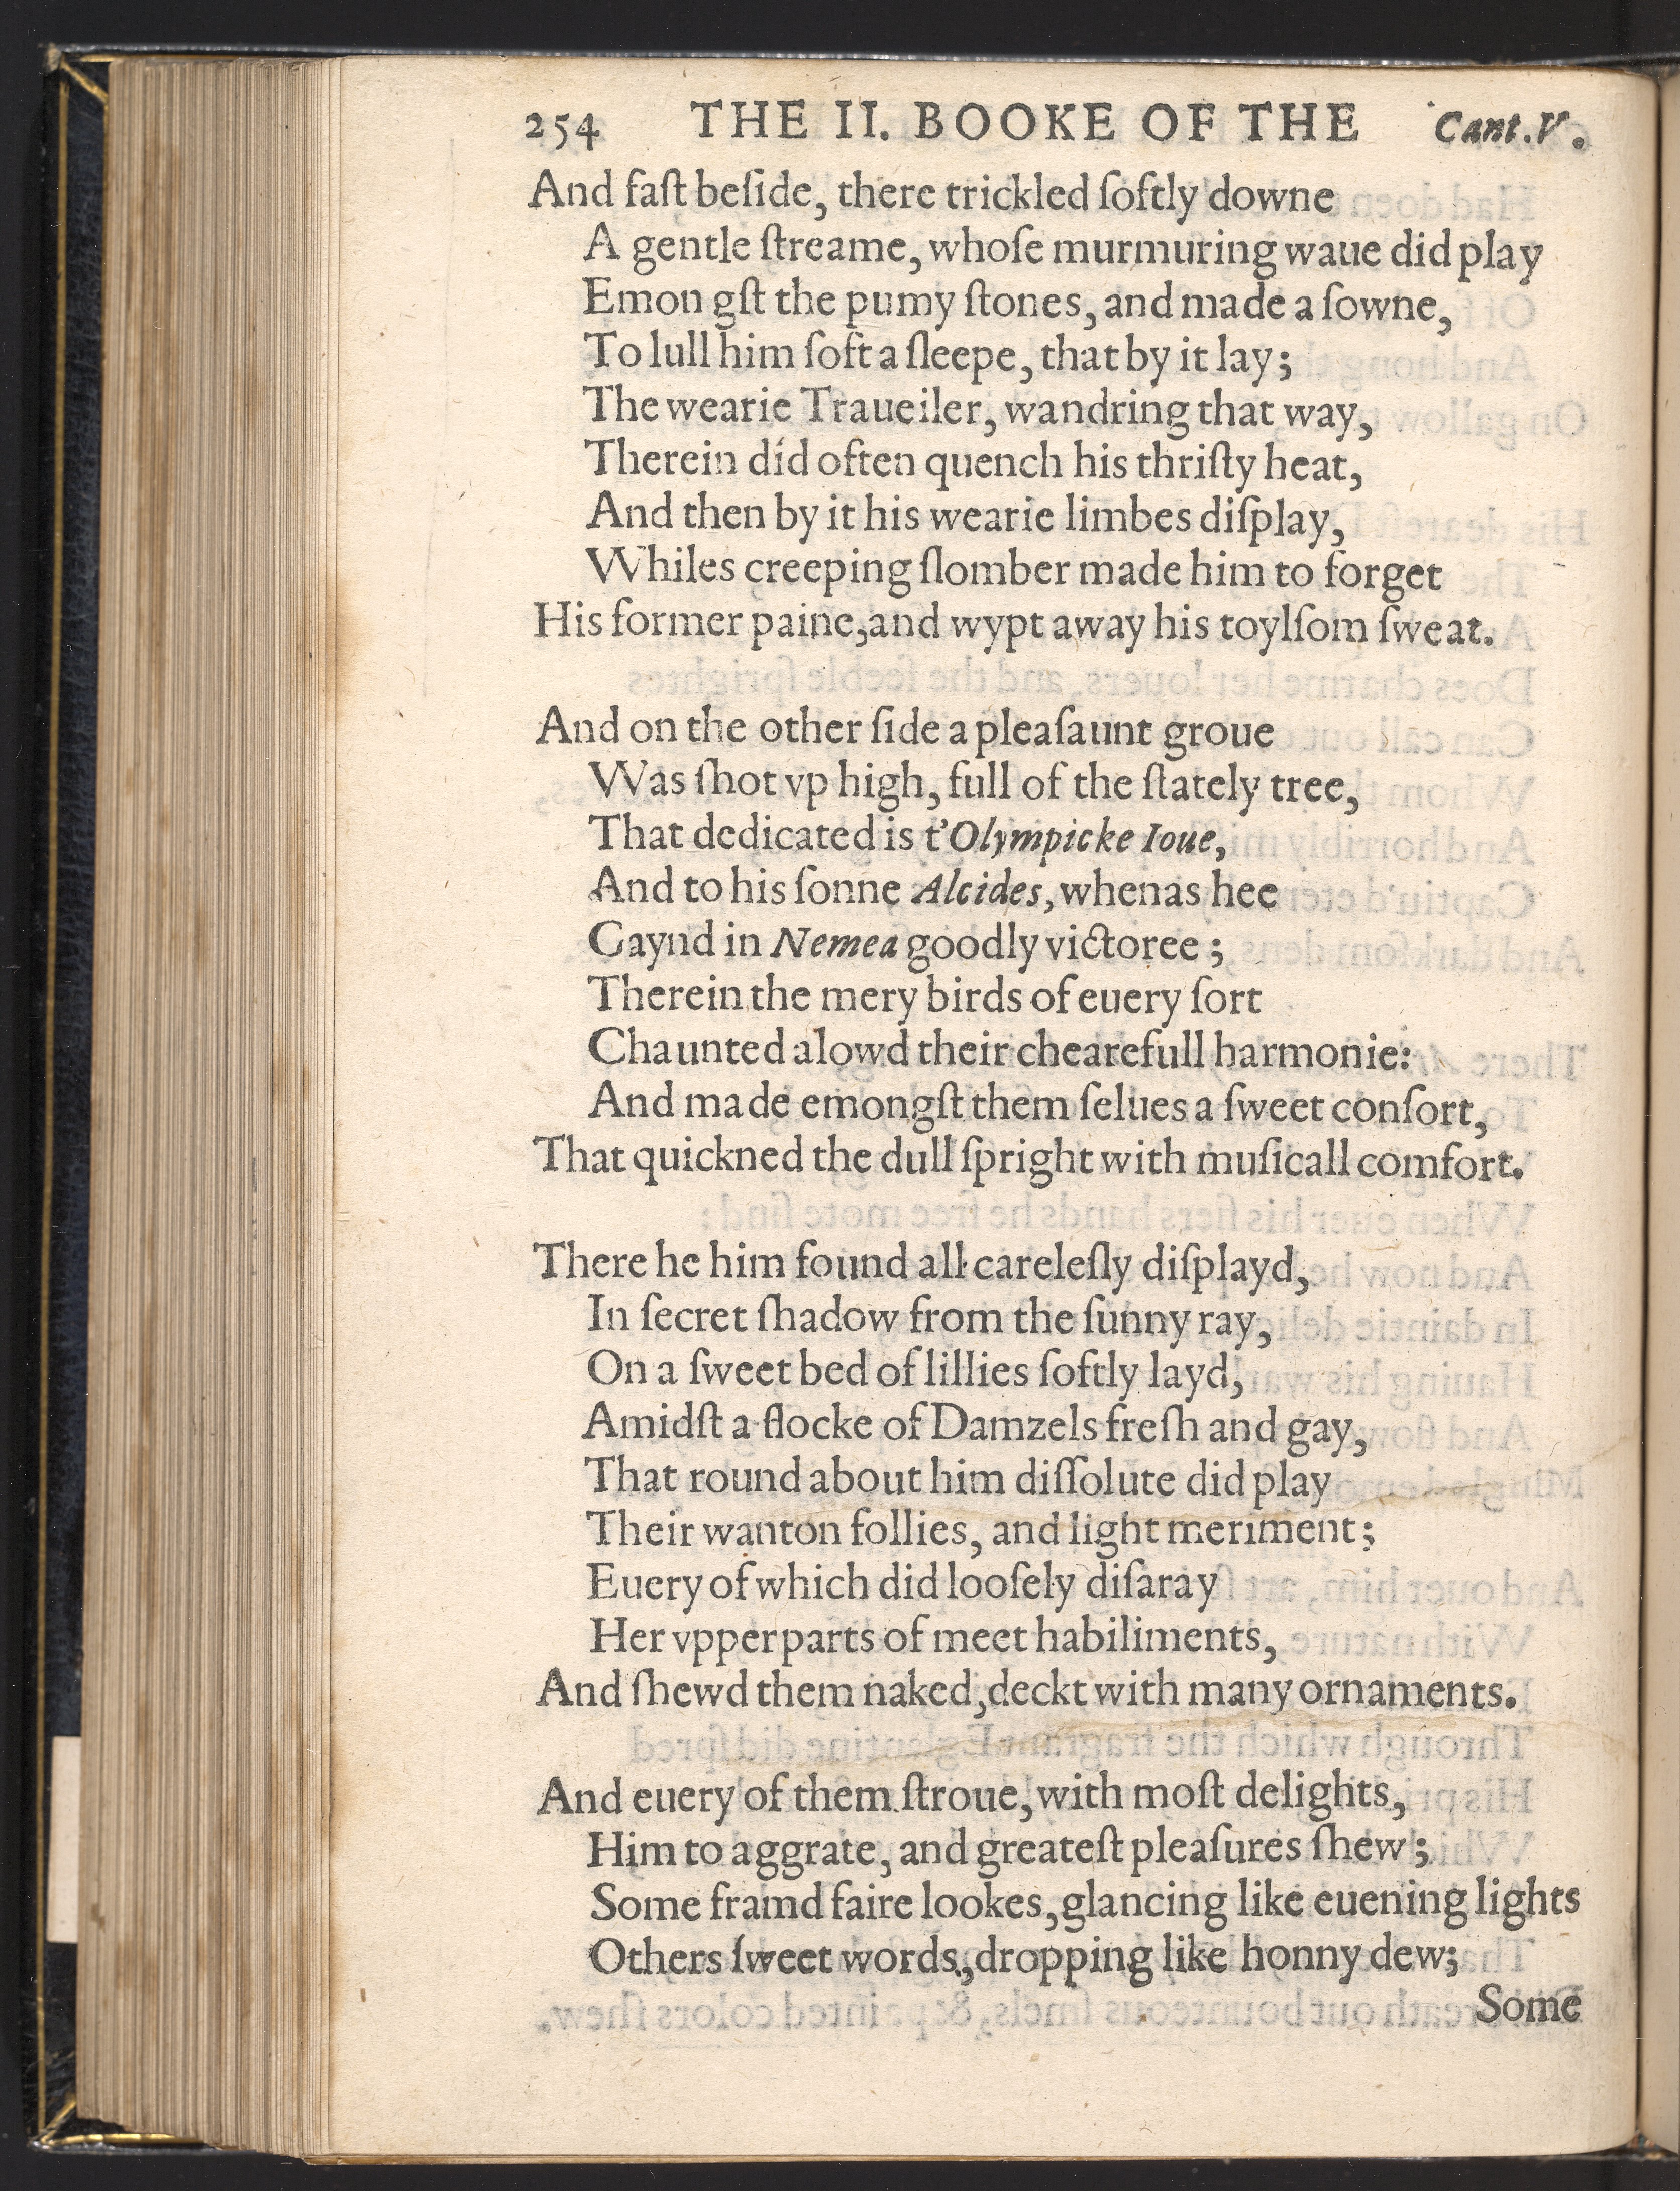 254 THE II. BOOKE OF THE Cant.V.
And faſt beſide, there trickled ſoftly downe
A gentle ſtreame, whoſe murmuring waue did play
Emongſt the pumy ſtones, and made a ſowne,
To lull him ſoft a ſleepe, that by it lay;
The wearie Traueiler, wandring that way,
Therein did often quench his thriſty heat,
And then by it his wearie limbes diſplay,
Whiles creeping ſlomber made him to forget
His former paine, and wypt away his toylſom ſweat.
And on the other ſide a pleaſaunt groue
Was ſhot vp high, full of the ſtately tree,
That dedicated is t'Olympicke Ioue,
And to his ſonne Alcides, whenas hee
Gaynd in Nemea goodly victoree;
Therein the mery birds of euery ſort
Chaunted alowd their chearefull harmonie:
And made emongſt them ſelues a ſweet conſort,
That quickned the dull ſpright with muſicall comfort.
There he him found all careleſly diſplayd,
In ſecret ſhadow from the ſunny ray,
On a ſweet bed of lillies ſoftly layd,
Amidſt a flocke of Damzels freſh and gay,
That round about him diſſolute did play
Their wanton follies, and light meriment;
Euery of which did looſely diſaray
Her vpper parts of meet habiliments,
And ſhewd them naked, deckt with many ornaments.
And euery of them ſtroue, with moſt delights,
Him to aggrate, and greateſt pleaſures ſhew;
Some framd faire lookes, glancing like euening lights
Others ſweet words, dropping like honny dew;
Some